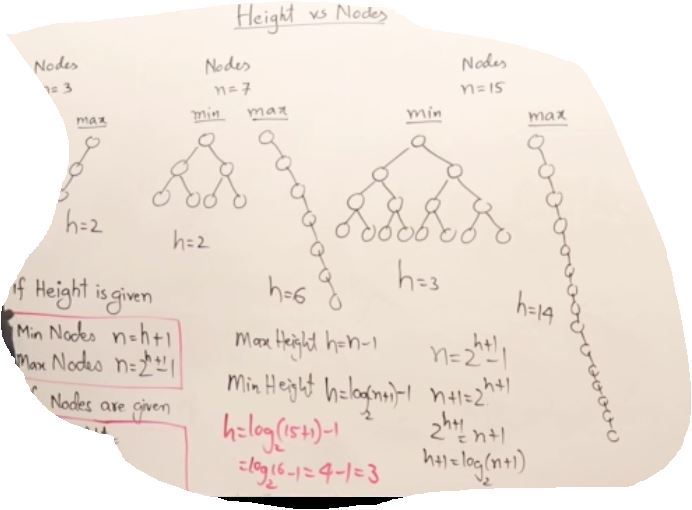 Height vs Nodes
Nodes
n=3
Nodes
n=7
Nodes
n=15
max
min max
min
max
h=2
h=2
h=6
h=3
h=14
If Height is given
Min Nodes n=h+1
Max Nodes n=2^(h+1)-1
Nodes are given
Max Height h=n-1
Min Height h=log₂(n+1)-1
h=log₂(15+1)-1
=log₂16-1=4-1=3
n=2^(h+1)-1
n+1=2^(h+1)
2^(h+1)=n+1
h+1=log₂(n+1)